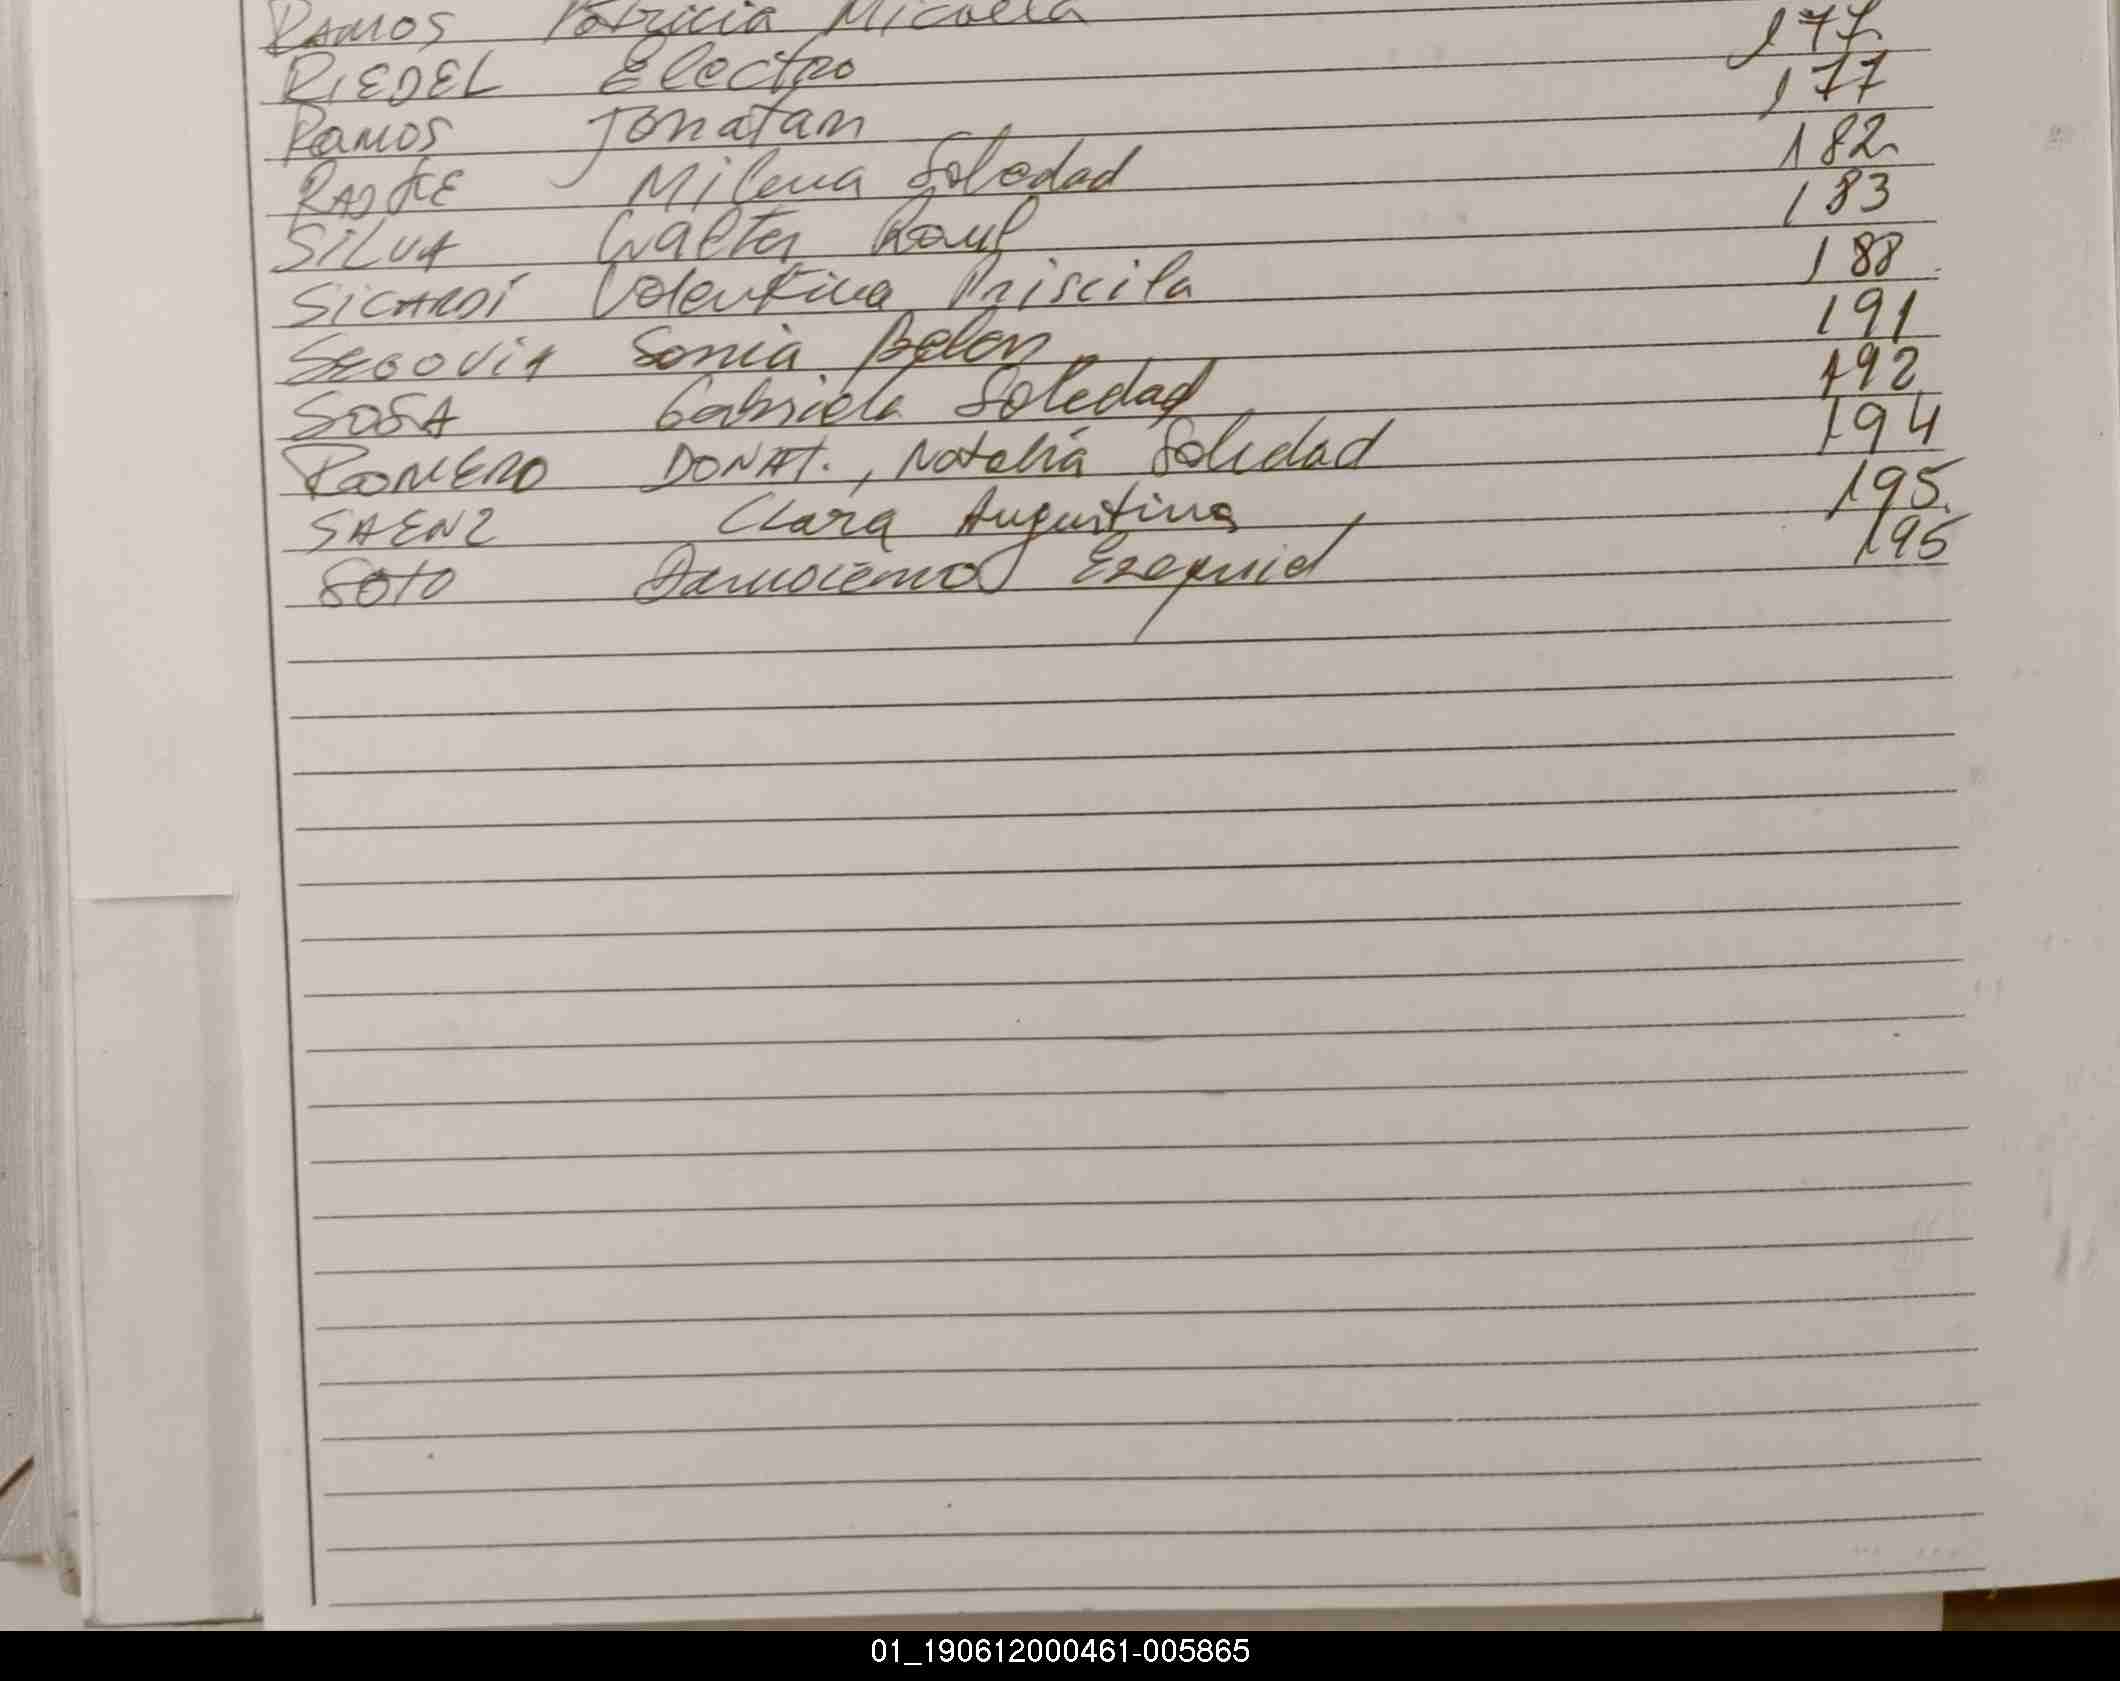 RAMOS Patricia Micaela
RIEDEL Electro 177
Ramos Jonatan 177
RAJKE Milena Soledad 182
SILVA Walter Raul 183
SICARDI Valentina Priscila 188
SEGOVIA Sonia Belen 191
SOSA Gabriela Soledad 192
ROMERO DONAT., Natalia Soledad 194
SAENZ Clara Agustina 195
SOTO Ezequiel 195
01_190612000461-005865